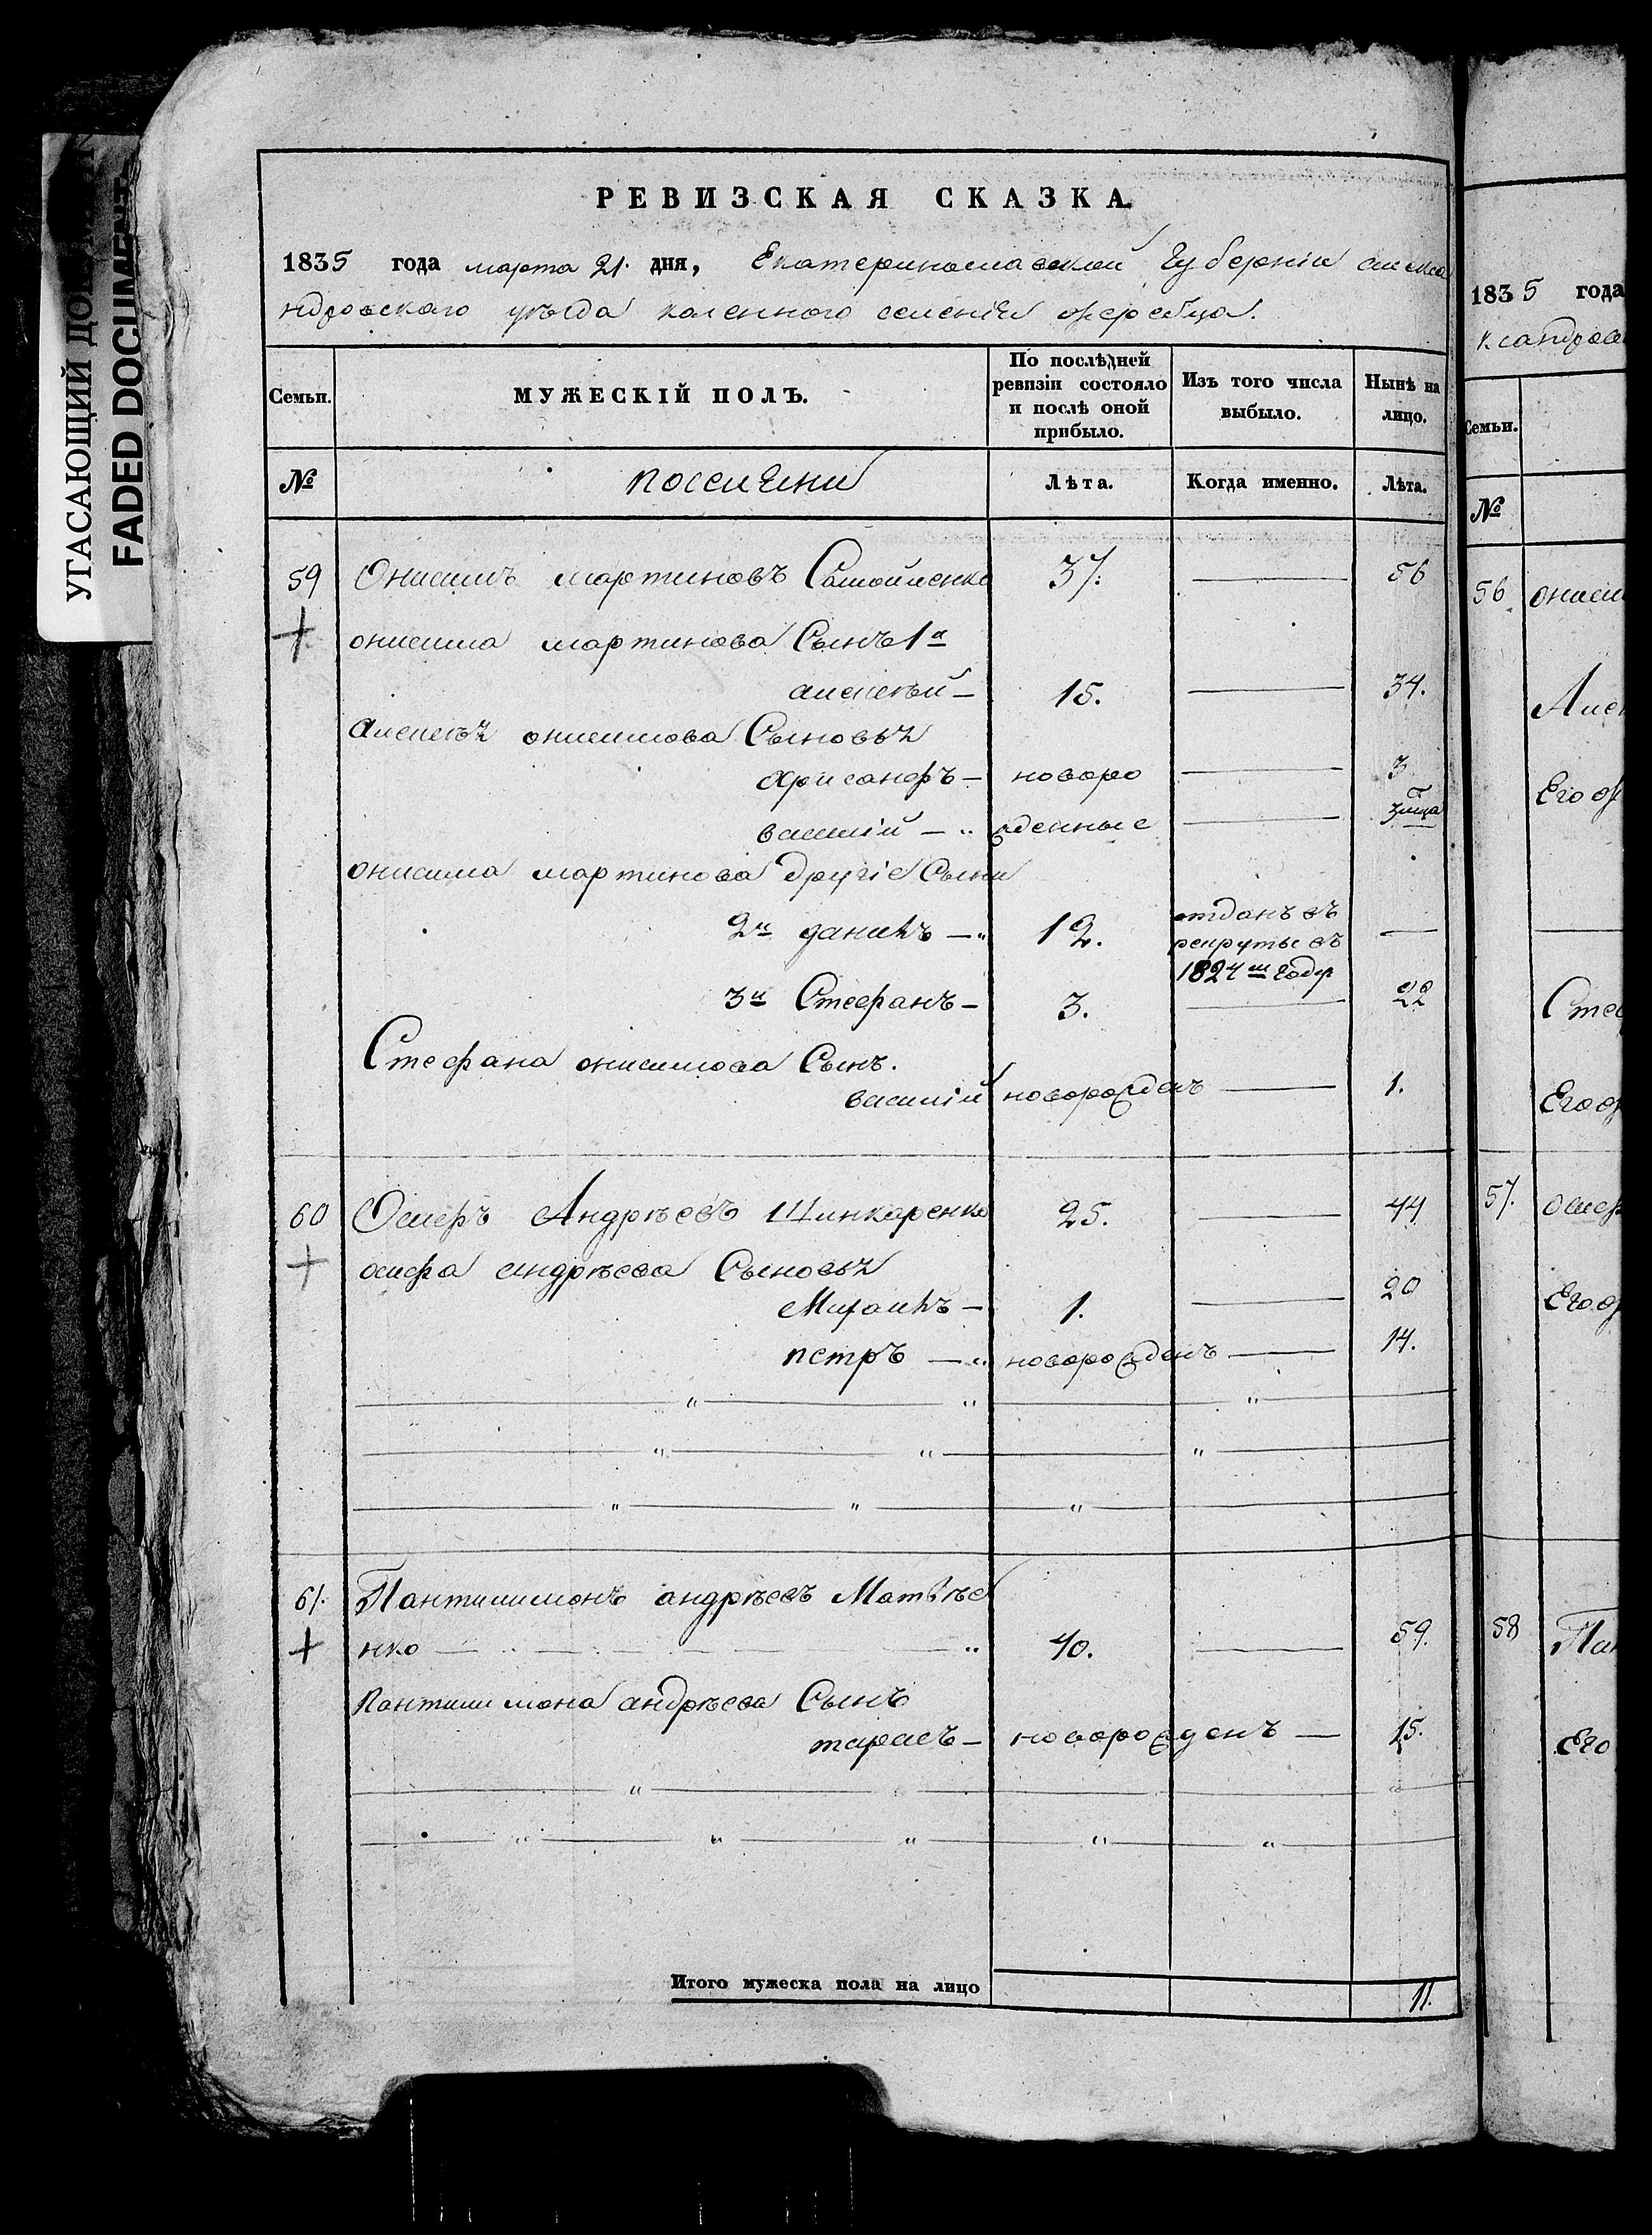 УГАСАЮЩИЙ ДОКУМЕНТ
FADED DOCUMENT
РЕВИЗСКАЯ СКАЗКА.
1835 года марта 21. дня, Екатеринославской Губерніи алекса
ндровского уѣзда казенного селенія жеребца.
Семьи.
МУЖЕСКІЙ ПОЛЪ.
По послѣдней
ревизіи состояло
и послѣ оной
прибыло.
Изъ того числа
выбыло.
Нынѣ на
лицо.
№
поселяни
Лѣта.
Когда именно.
Лѣта.
59 Онисимъ мартиновъ Самойленко 37. 56
онисима мартинова Сынъ 1й
алексѣй 15. 34.
алексѣя онисимова Сыновья
хрисанфъ новоро 3
василій жденные
онисима мартинова другіе Сыни
2й данилъ 12. отданъ въ
рекруты въ
1824м году
3й Стефанъ 3. 22
Стефана онисимова Сынъ.
василій новорожденъ 1.
60 Осифъ Андрѣевъ Шинкаренко 25. 44
осифа андрѣева Сыновья
Михаилъ 1. 20
петръ новорожденъ 14.
61. Пантилимонъ андрѣевъ Матвѣе
нко 40. 59.
Пантилимона андрѣева Сынъ
тарасъ новорожденъ 15.
Итого мужеска пола на лицо 11.
1835 года
ксандров
Семьи.
№
56 ониси
Алек
Его ж
Стеф
Его ж
57. осиф
Его ж
58 Пан
Его